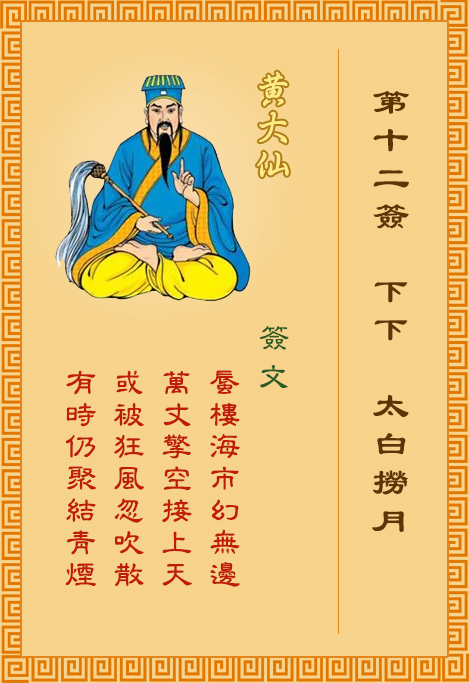 第十二簽 下下 太白撈月
黃大仙
簽文
蜃樓海市幻無邊
萬丈擎空接上天
或被狂風忽吹散
有時仍聚結青煙